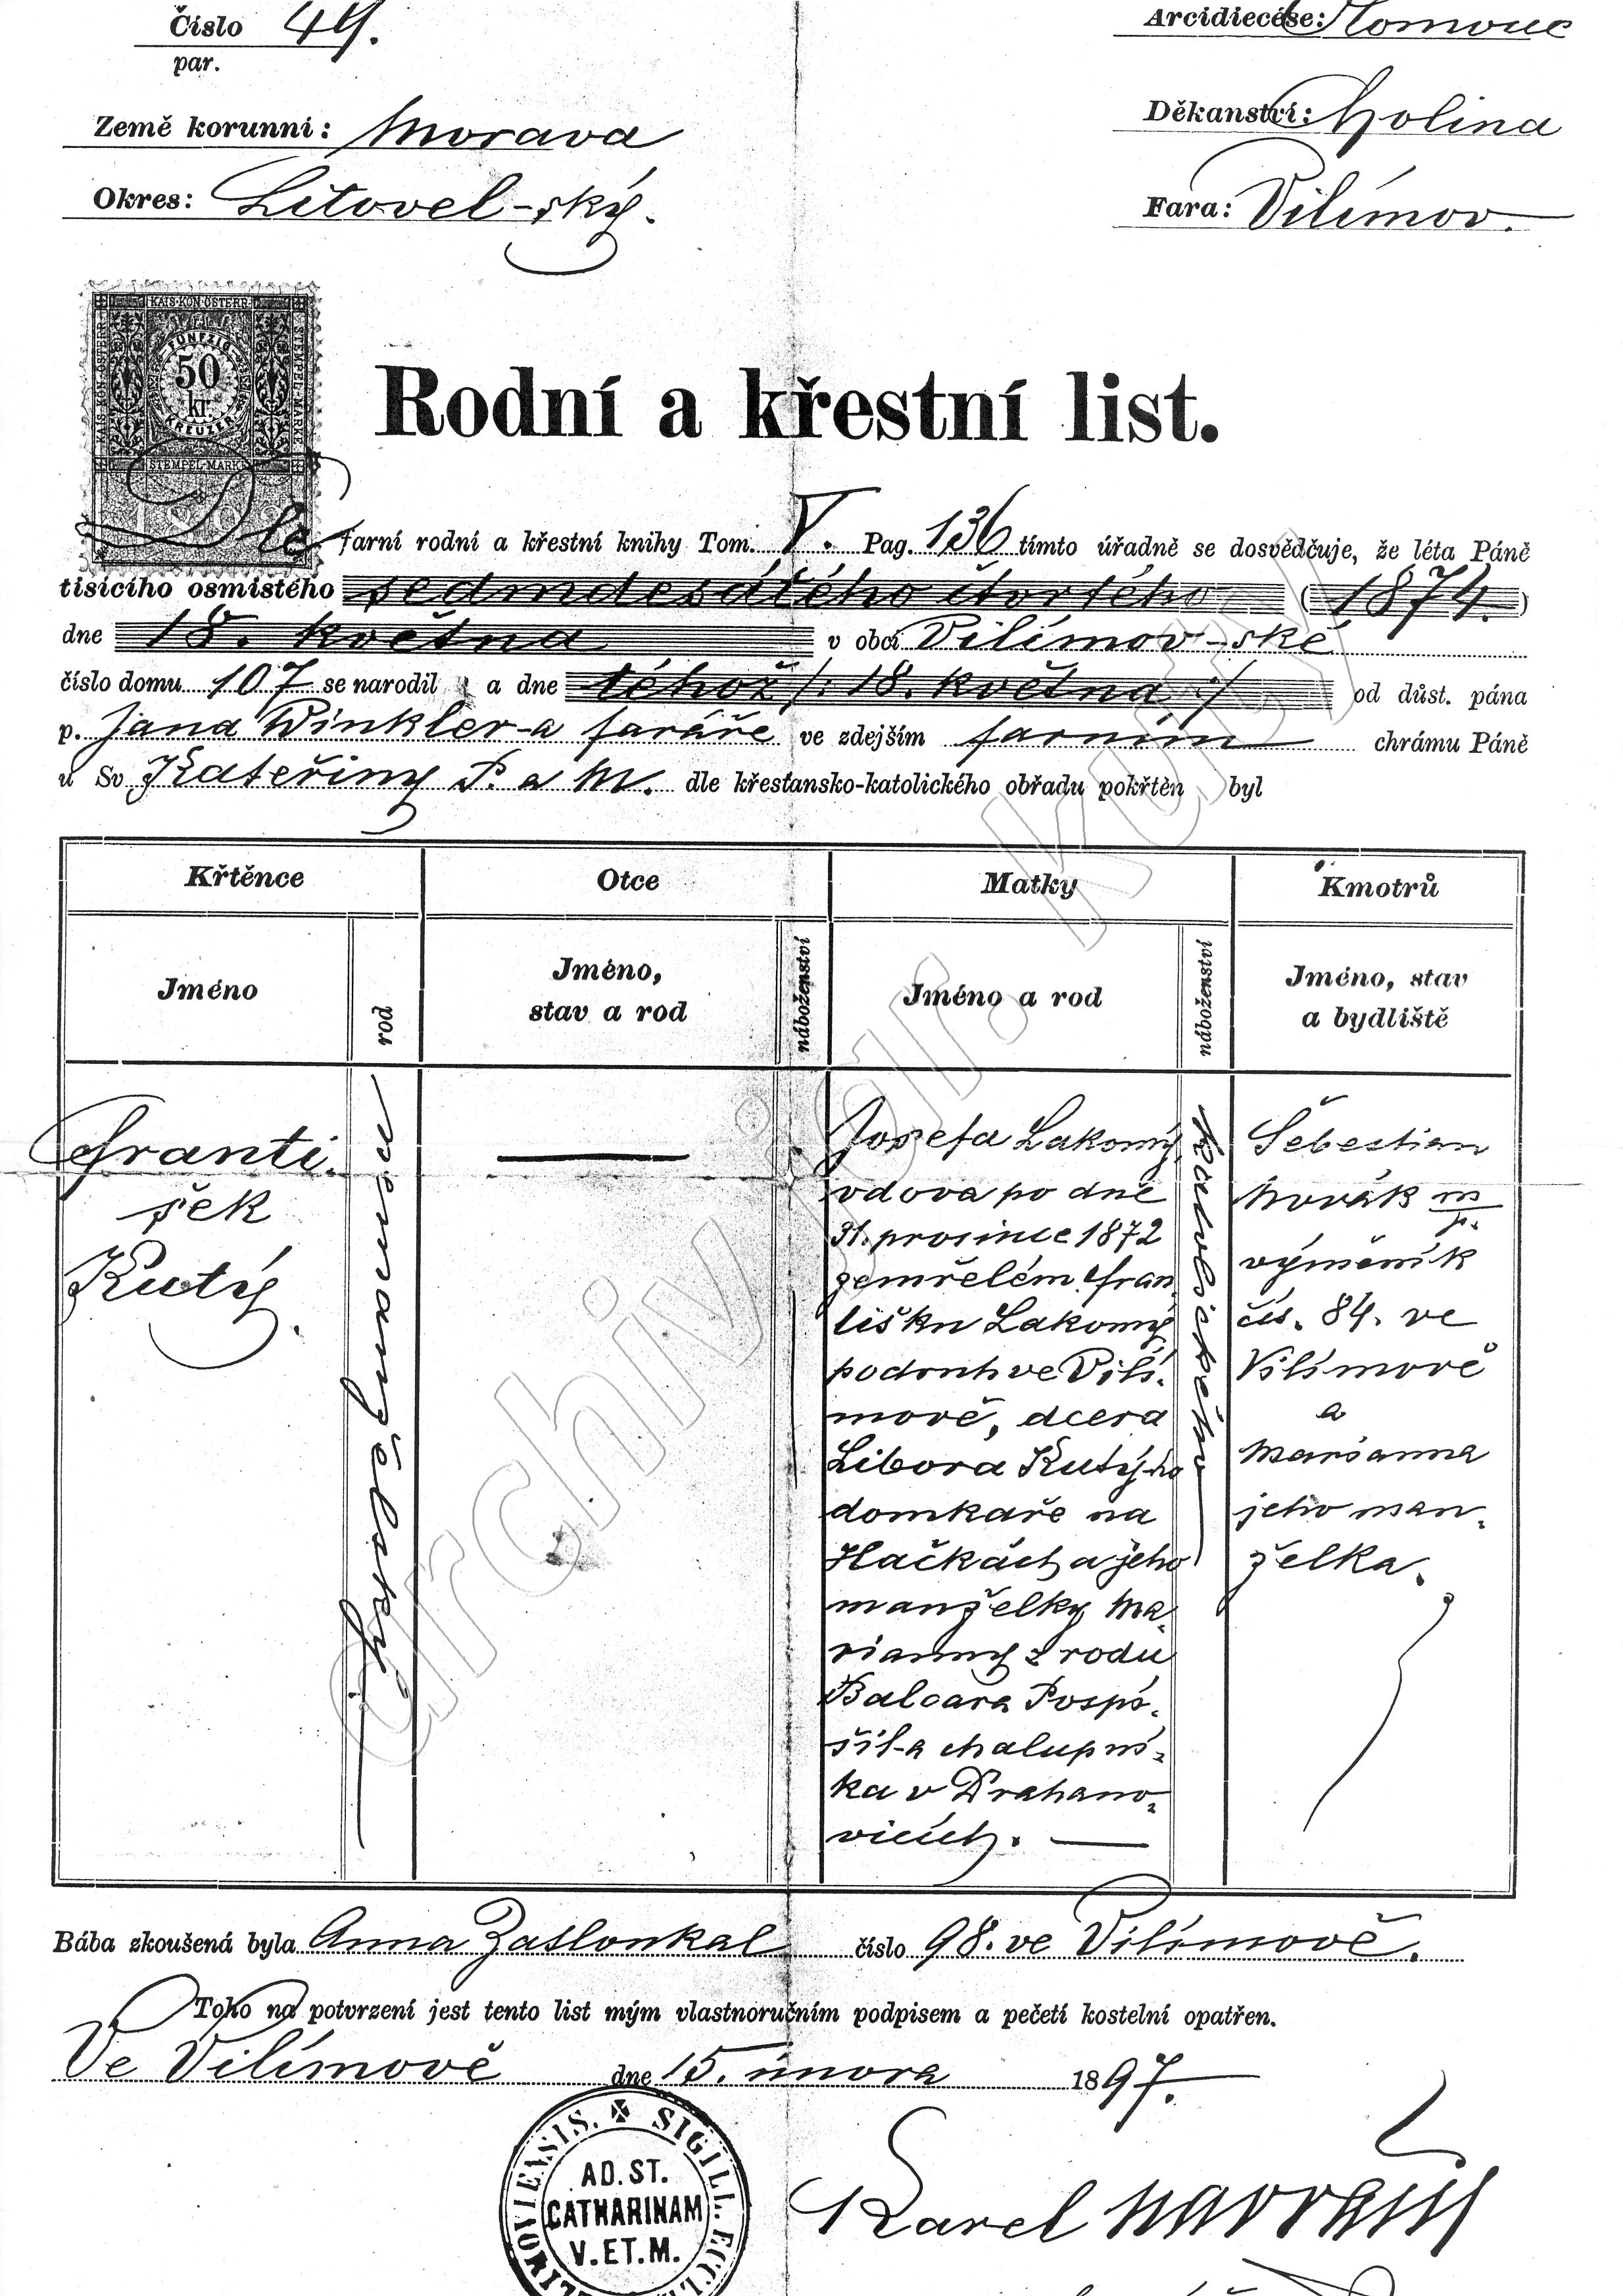 Číslo 49.
par.
Země korunní: Morava
Okres: Litovel-ský.
Arcidiecése: Olomouc
Děkanství: Cholina
Fara: Vilímov.
KAIS·KON·ÖSTERR·
FÜNFZIG
50
kr.
KREUZER
STEMPEL-MARKE
Rodní a křestní list.
Dle farní rodní a křestní knihy Tom. V. Pag. 136 tímto úřadně se dosvědčuje, že léta Páně
tisícího osmistého sedmdesátého čtvrtého (1874.)
dne 18. května v obci Vilímov-ské
číslo domu 107 se narodil a dne téhož /: 18. května :/ od důst. pána
p. Jana Winkler-a faráře ve zdejším farním chrámu Páně
u Sv Kateřiny P. a M. dle křesťansko-katolického obřadu pokřtěn byl
Křtěnce
Otce
Matky
Kmotrů
Jméno
rod
Jméno,
stav a rod
náboženství
Jméno a rod
náboženství
Jméno, stav
a bydliště
Franti-
šek
Kutý.
Josefa Lakomý,
vdova po dne
31. prosince 1872
zemřelém Fran-
tišku Lakomý
podruh ve Vilí-
mově, dcera
Libora Kutý-ho
domkaře na
Hačkách a jeho
manželky Ma-
rianny z rodu
Balcara Pospí-
šil-a chalupní-
ka v Drahano-
vicích.
Šebestian
Novák m
p.
výměník
čís. 84. ve
Vilímově
a
Marianna
jeho man-
želka.
Bába zkoušená byla Anna Zaslonkal číslo 98. ve Vilímově.
Toho na potvrzení jest tento list mým vlastnoručním podpisem a pečetí kostelní opatřen.
Ve Vilímově dne 15. února 1897.
SIGILL. ECCL
AD. ST.
CATHARINAM
V. ET. M.
Karel Navrátil
archiv pr. kutý